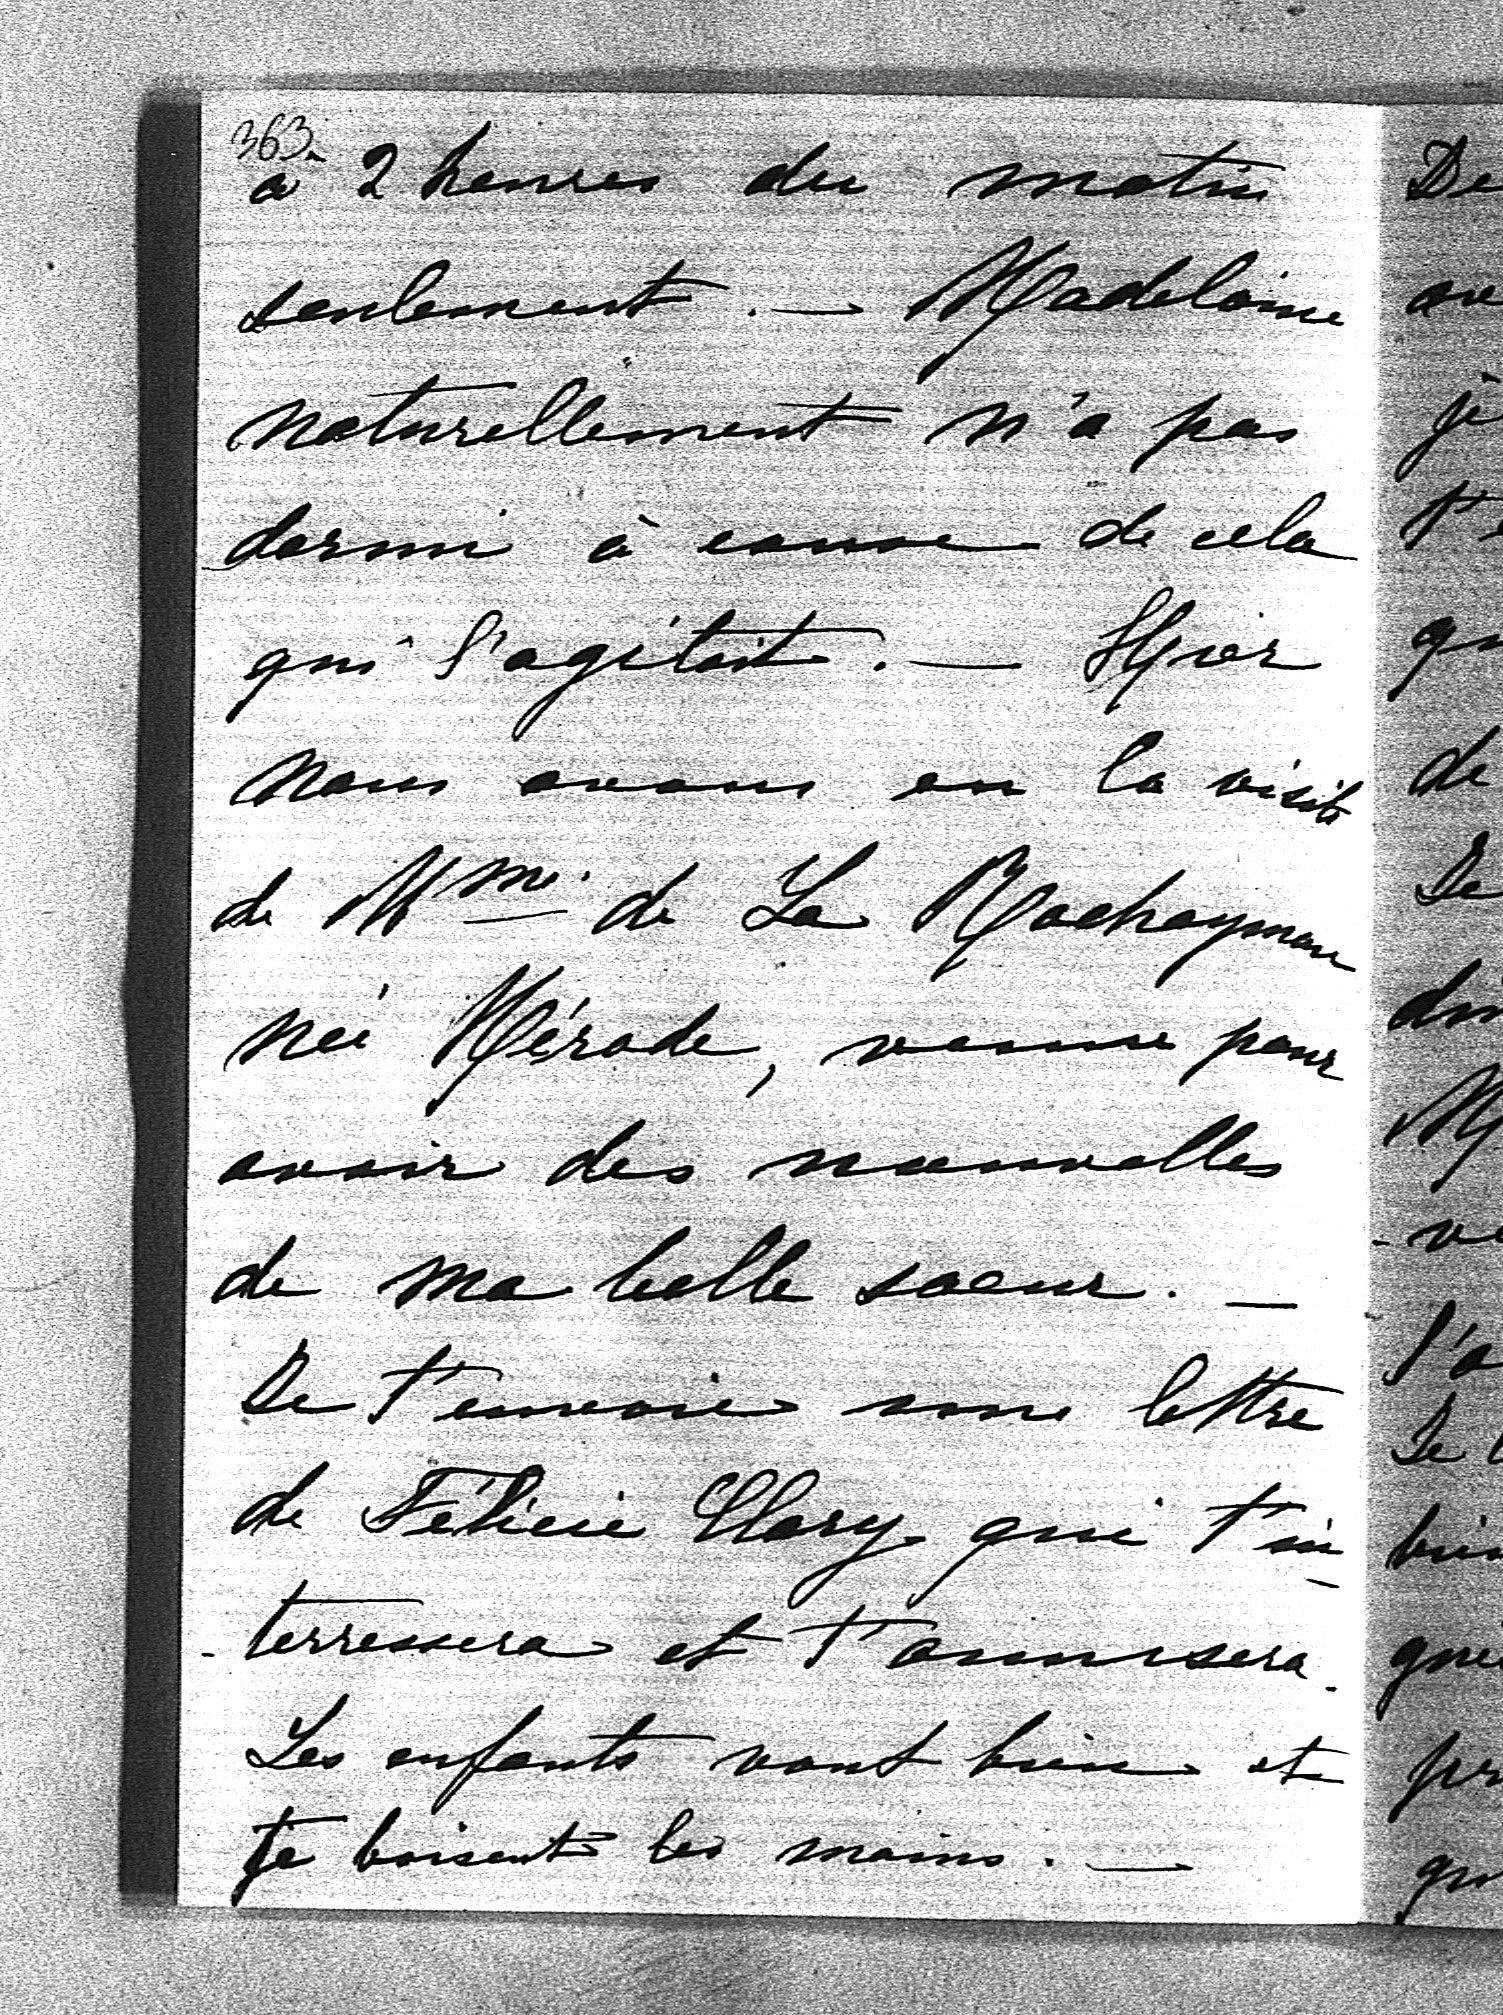 363.
à 2 heures du matin
seulement. — Madelaine
naturellement n'a pas
dormi à cause de cela
qui l'agitait. — Hier
nous avons eu la visite
de Mme. de La Rochaymon
née Mérode, venue pour
avoir des nouvelles
de ma belle soeur. —
Je t'envoie une lettre
de Félicie Clary qui t'in
- terressera et t'amusera.
Les enfants vont bien et
te baisent les mains. —